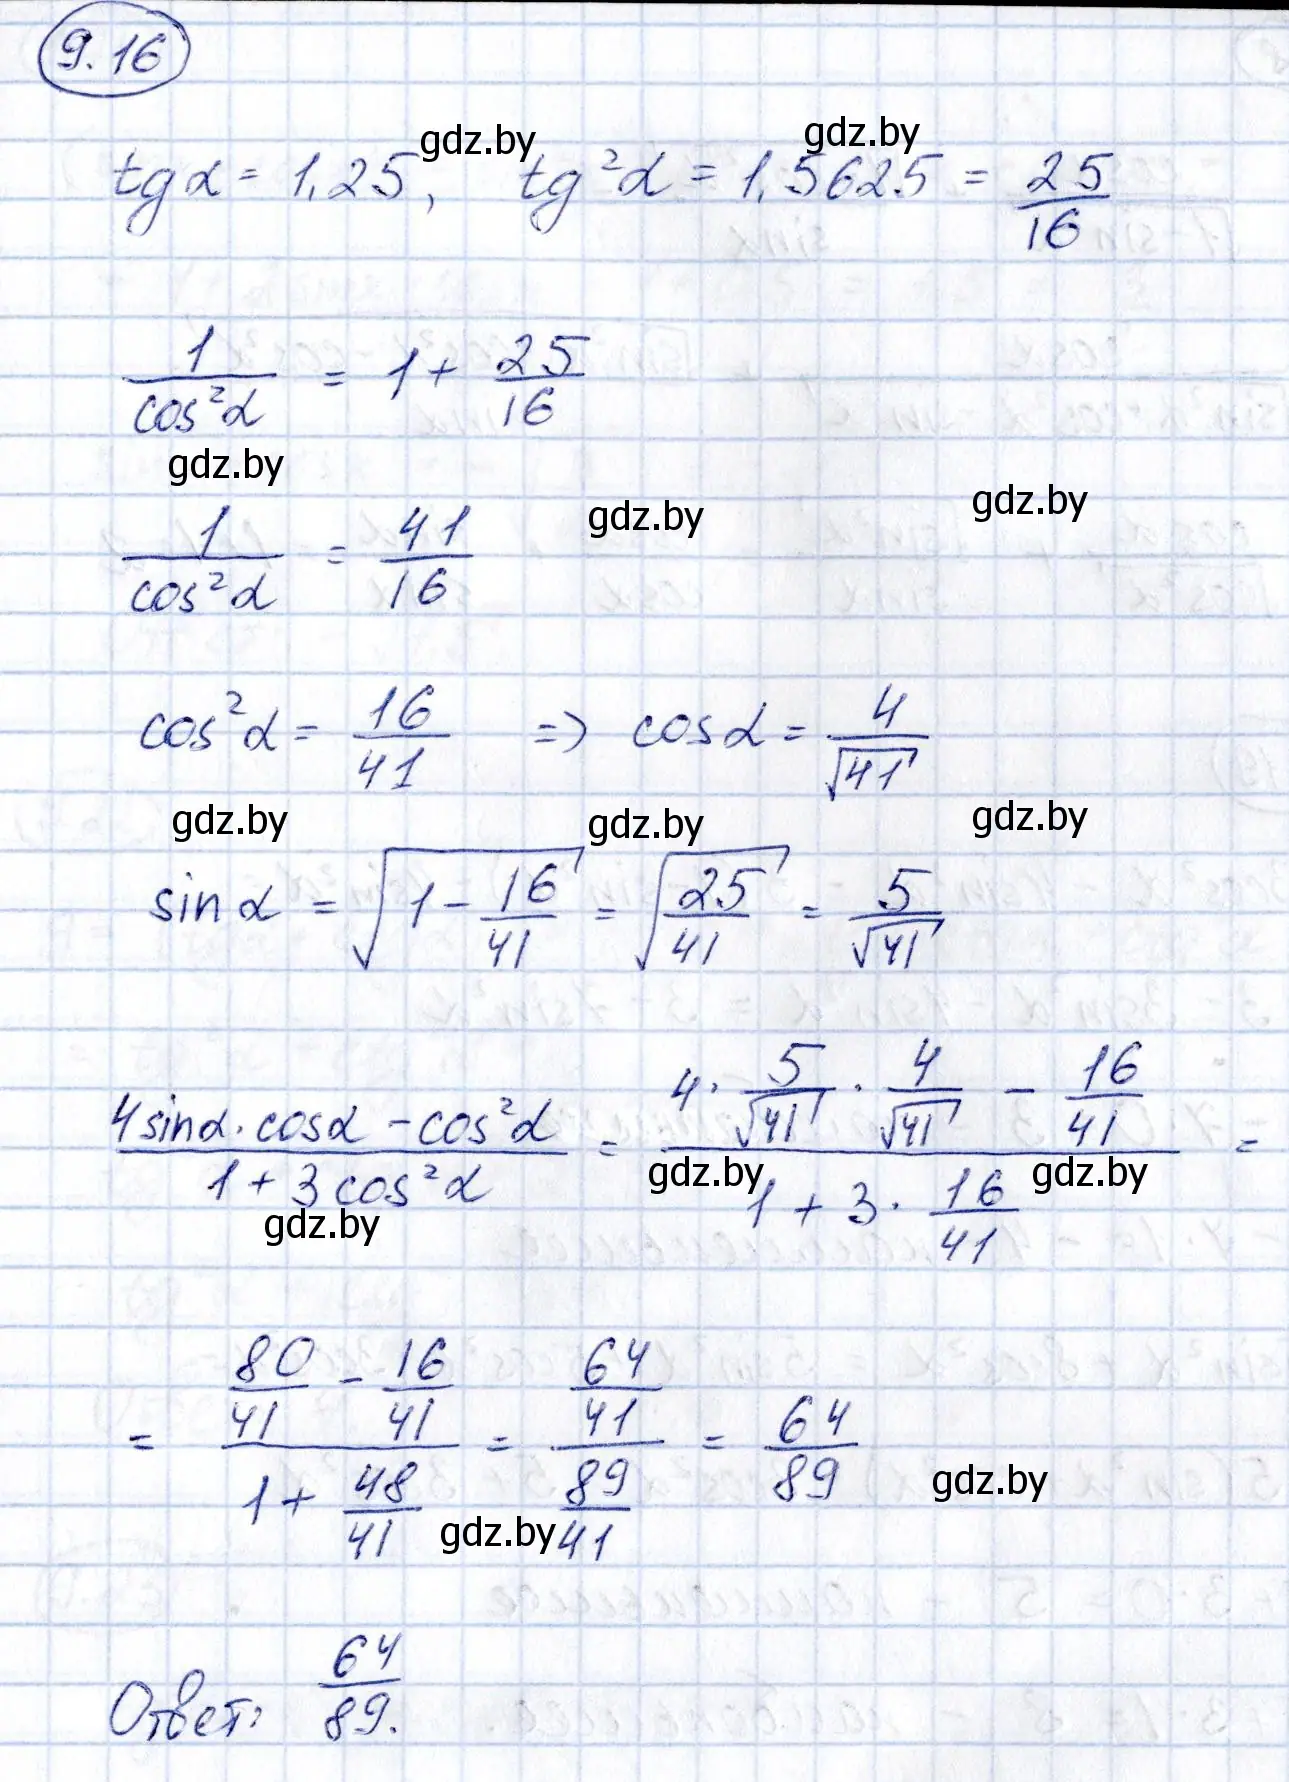 9.16
gdz.by gdz.by
tg α = 1,25, tg²α = 1,5625 = 25/16
1/cos²α = 1 + 25/16
gdz.by gdz.by gdz.by
1/cos²α = 41/16
cos²α = 16/41 => cos α = 4/√41
gdz.by gdz.by gdz.by
sin α = √(1 - 16/41) = √(25/41) = 5/√41
(4 sin α · cos α - cos²α)/(1 + 3 cos²α) = (4 · 5/√41 · 4/√41 - 16/41)/(1 + 3 · 16/41) =
gdz.by gdz.by gdz.by
= (80/41 - 16/41)/(1 + 48/41) = (64/41)/(89/41) = 64/89
gdz.by gdz.by
Ответ: 64/89.